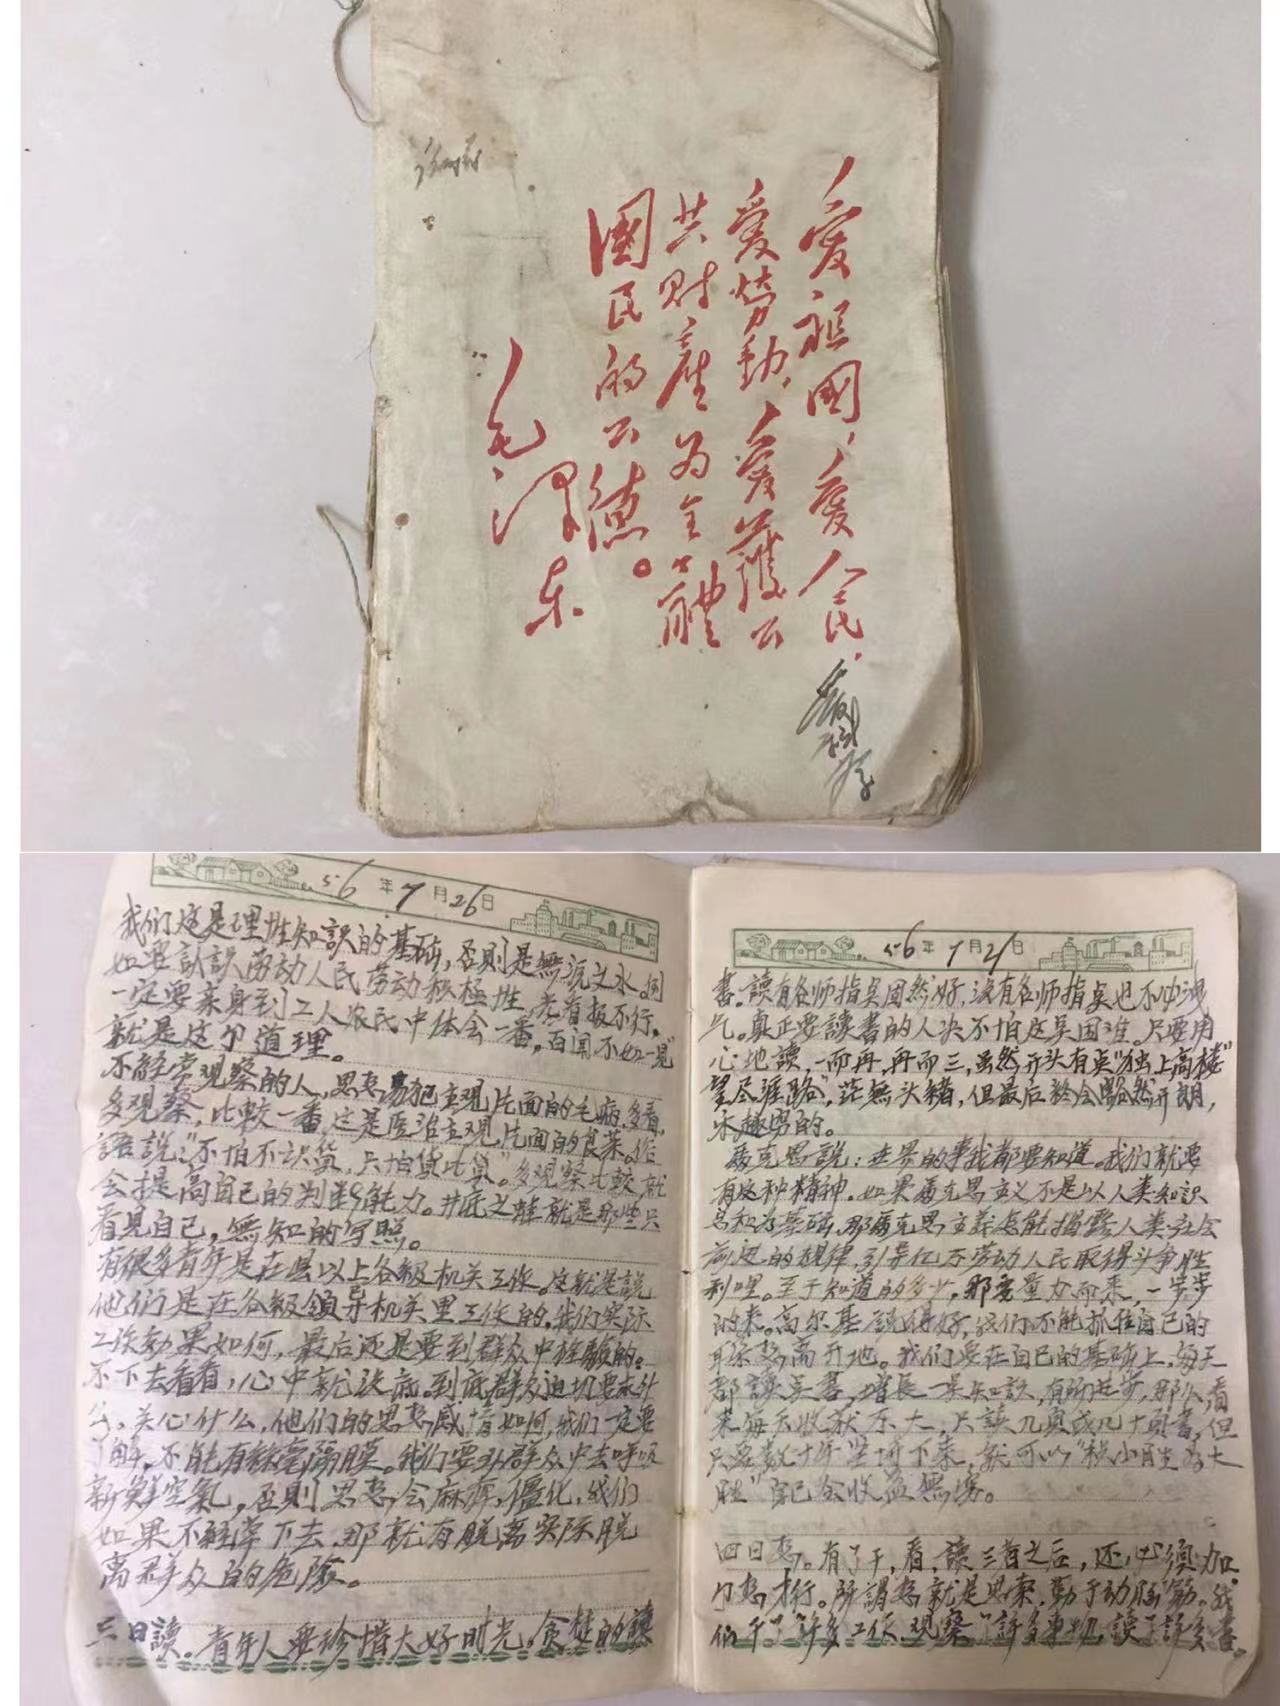 愛祖國、愛人民、
愛勞動、愛護公
共財產为全體
國民的公德。
毛澤东
56年7月26日
我们这是理性知识的基础，否则是無源之水。例
如要認识劳动人民劳动积极性，老看报不行，
一定要亲身到工人农民中体会一番，百闻不如一見"
就是这个道理。
不經常观察的人，思想易犯主观片面的毛病，多看，
多观察，比較一番，这是医治主观片面的良药。俗
語說："不怕不识货，只怕货比货。"多观察比較，就
会提高自己的判断能力。井底之蛙就是那些只
看見自己，無知的写照。
有很多青年是在县以上各級机关工作。这就是説
他们是在各級領导机关里工作的。我们实际
工作効果如何，最后还是要到群众中体驗的。
不下去看看，心中就没底。到底群众迫切要求什
么，关心什么，他们的思想感情如何，我们一定要
了解，不能有絲毫隔膜。我们要到群众中去呼吸
新鮮空氣，否則思想会麻痹，僵化，我们
如果不經常下去，那就有脱离实际脱
离群众的危险。
三曰讀。青年人要珍惜大好时光，貪婪的讀
56年7月2日
書。讀有名师指点固然好，没有名师指点也不必洩
气。真正要讀書的人决不怕这点困难。只要用
心地讀，一而再，再而三，虽然开头有点"独上高楼"
望尽涯路"，茫無头緒，但最后終会豁然开朗，
乐趣無的。
馬克思說：世界的事我都要知道。我们就要
有这种精神。如果馬克思主义不是以人类知識
总和为基础，那馬克思主義怎能揭露人类社会
前进的規律，引导亿万劳动人民取得斗争胜
利哩。至于知道的多少，那要量力而来，一步步
的来。高尔基說得好，我们不能抓住自己的
耳朵想离开地。我们要在自己的基础上，每天
都讀点書，增長一点知识，有所进步，那么看
来每天收获不大，只讀几頁或几十頁書，但
只要数十年坚持下来，就可以"积小胜为大
胜"自己会收益無窮。
四曰想。有了干，看，讀三者之后，还必須加
个想才行。所謂想就是思索，勤于动脑筋。我
们干了許多工作，观察了許多事物，讀了許多書。